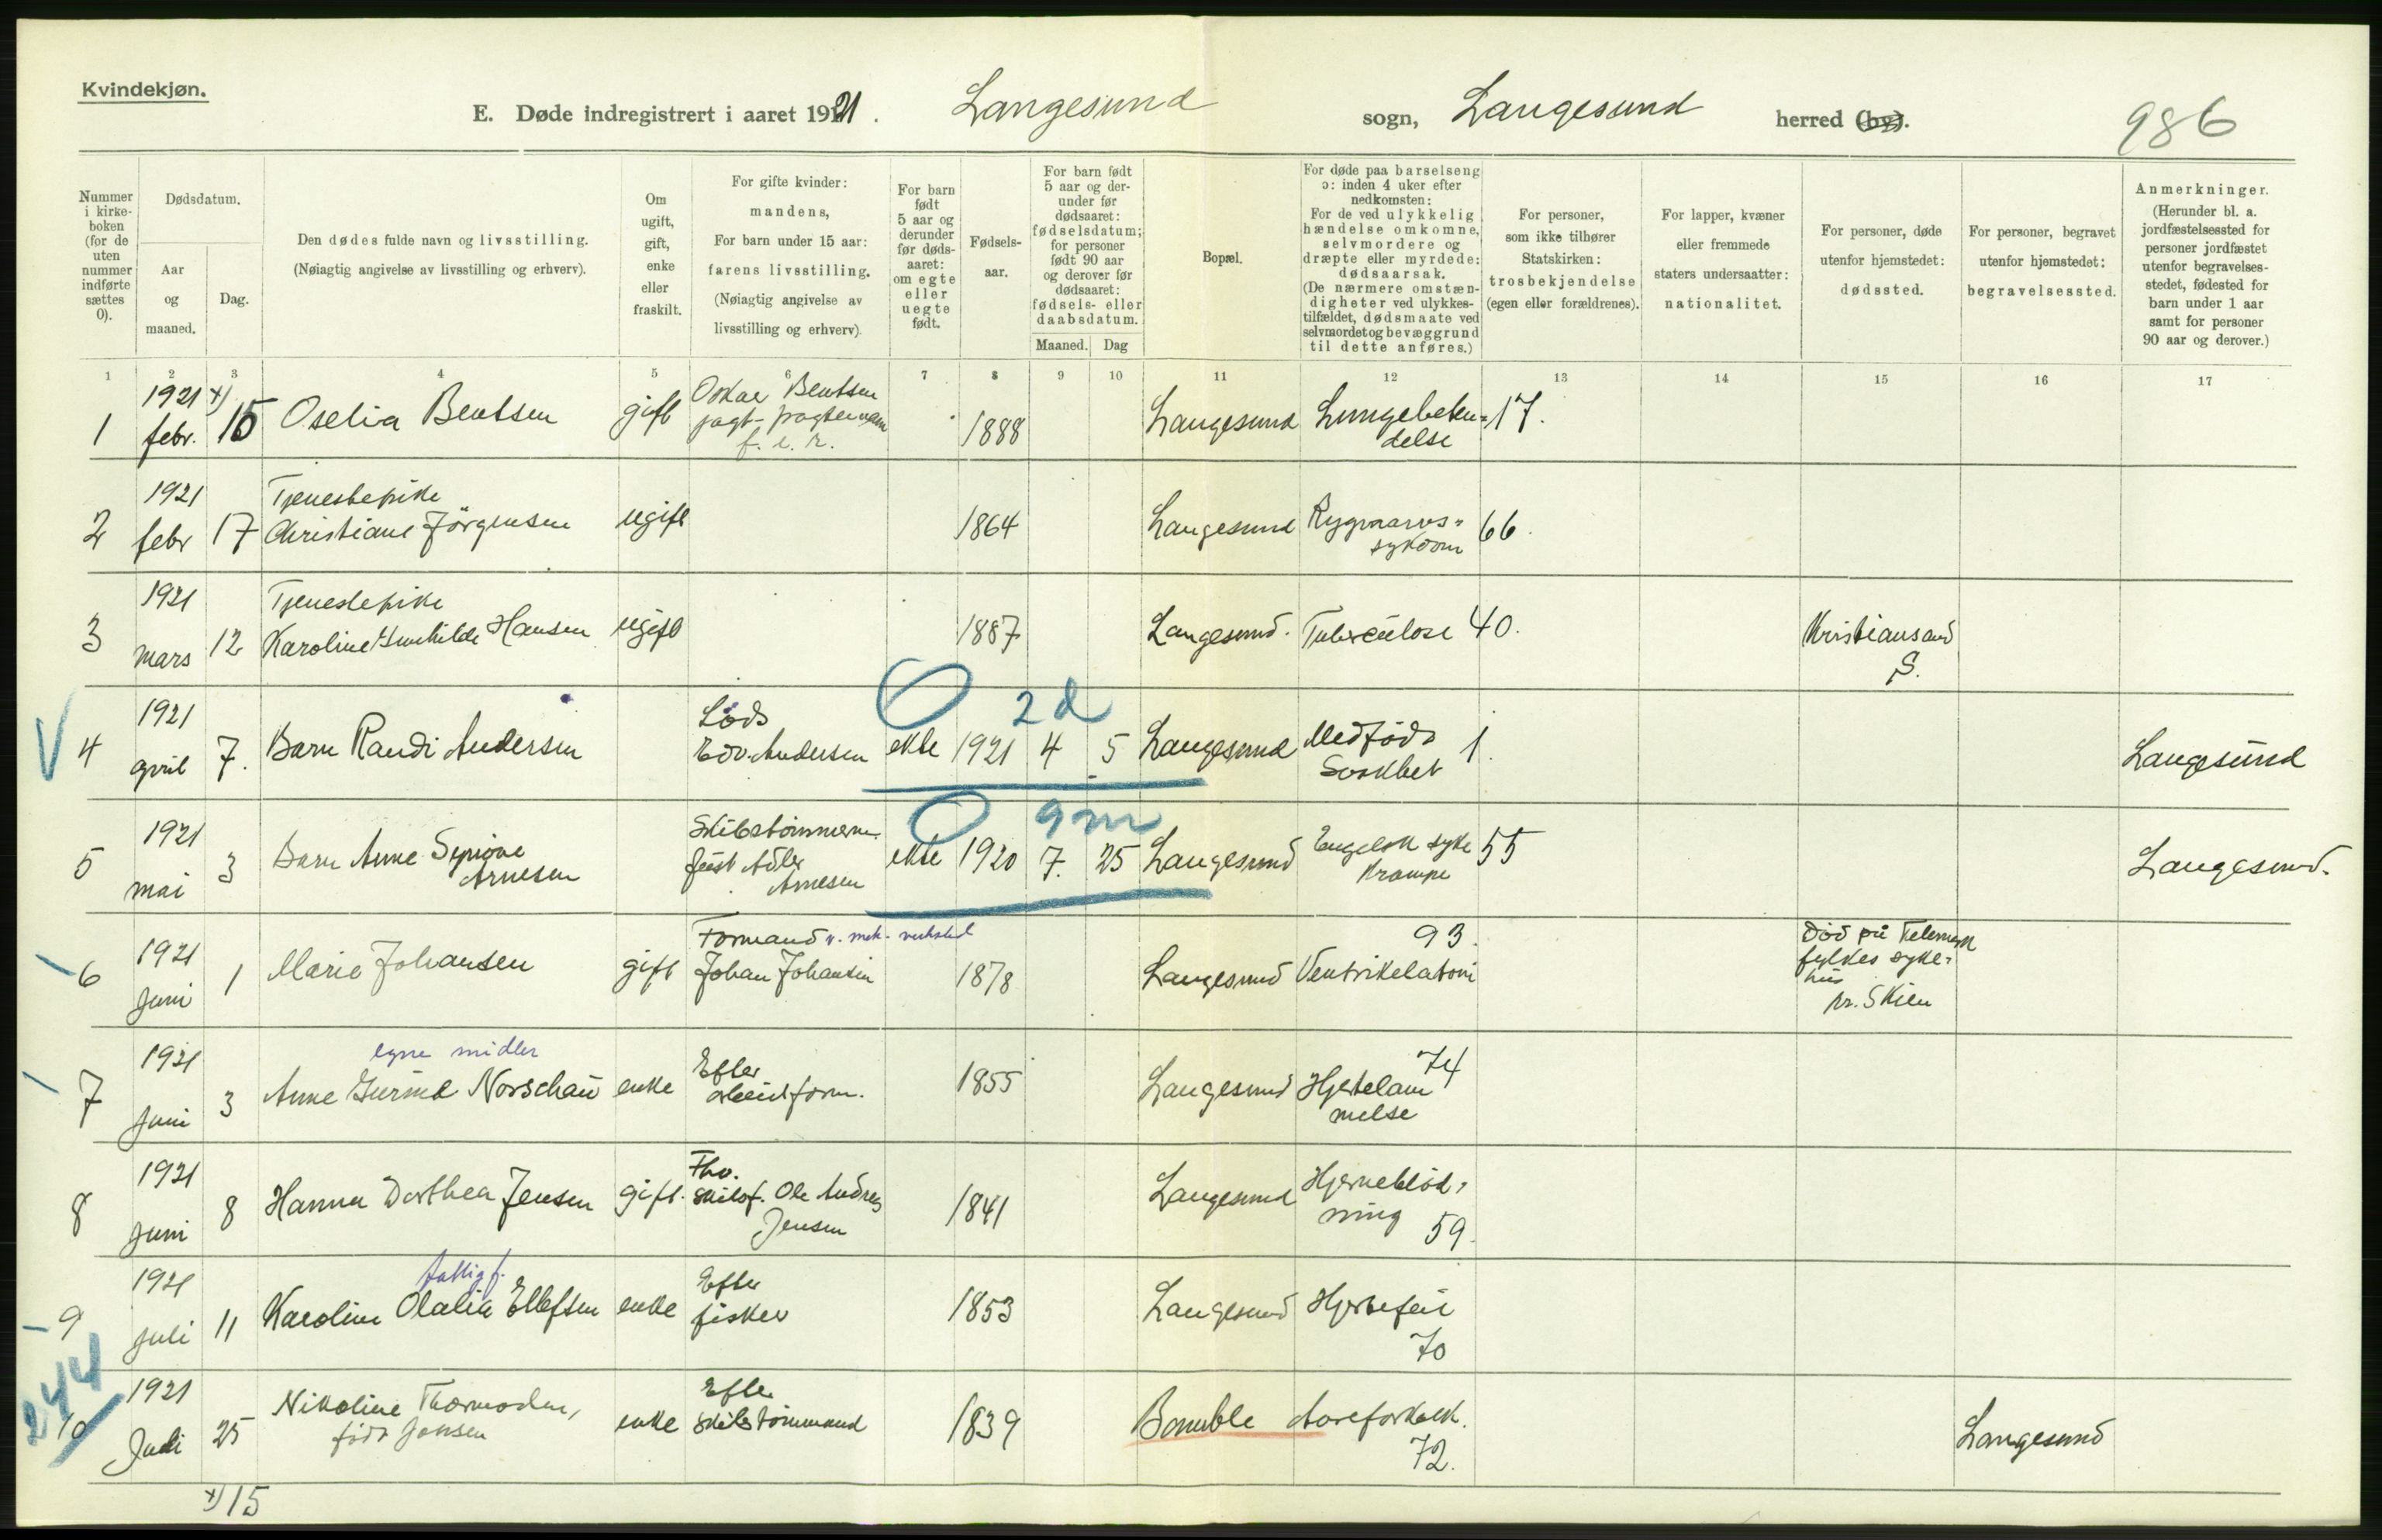 Kvindekjøn.
E. Døde indregistrert i aaret 1921. Langesund sogn, Langesund herred (by).
986
Nummer
i kirke-
boken
(for de
uten
nummer
indførte
sættes
0).
Dødsdatum.
Aar
og
maaned.
Dag.
Den dødes fulde navn og livsstilling.
(Nøiagtig angivelse av livsstilling og erhverv).
Om
ugift,
gift,
enke
eller
fraskilt.
For gifte kvinder:
mandens,
For barn under 15 aar:
farens livsstilling.
(Nøiagtig angivelse av
livsstilling og erhverv).
For barn
født
5 aar og
derunder
før døds-
aaret:
om egte
eller
uegte
født.
Fødsels-
aar.
For barn født
5 aar og der-
under før
dødsaaret:
fødselsdatum;
for personer
født 90 aar
og derover før
dødsaaret:
fødsels- eller
daabsdatum.
Maaned. Dag
Bopæl.
For døde paa barselseng
ɔ: inden 4 uker efter
nedkomsten:
For de ved ulykkelig
hændelse omkomne,
selvmordere og
dræpte eller myrdede:
dødsaarsak.
(De nærmere omstæn-
digheter ved ulykkes-
tilfældet, dødsmaate ved
selvmordet og bevæggrund
til dette anføres.)
For personer,
som ikke tilhører
Statskirken:
trosbekjendelse
(egen eller forældrenes).
For lapper, kvæner
eller fremmede
staters undersaatter:
nationalitet.
For personer, døde
utenfor hjemstedet:
dødssted.
For personer, begravet
utenfor hjemstedet:
begravelsessted.
Anmerkninger.
(Herunder bl. a.
jordfæstelsessted for
personer jordfæstet
utenfor begravelses-
stedet, fødested for
barn under 1 aar
samt for personer
90 aar og derover.)
1 2 3 4 5 6 7 8 9 10 11 12 13 14 15 16 17
1921 x) Oskar Bentsen
1 febr. 15 Oselia Bentsen gift jagt- 1888 Langesund Lungebeten- 17.
f. e. r. delse
1921 Tjenestepike
2 febr 17 Christiane Jörgensen ugift 1864 Langesund Rygmarvs- 66.
sykdom
1921 Tjenestepike
3 mars 12 Karoline Hansen ugift 1887 Langesund. Tuberculose 40. Kristiansand
S.
O 2 d
1921 Lods
4 april 7. Barn Randi Andersen Edv. Andersen ekte 1921 4 5 Langesund Medfödt 1. Langesund
Svakhet
O 9 m
1921 Skibstömmerm.
5 mai 3 Barn Anne Synöve Just Adler ekte 1920 7. 25 Langesund Engelsk syke 55 Langesund.
Arnesen Arnesen Krampe
1921 Formand v. mek. verksted 93. Död på Telemark
6 juni 1 Marie Johansen gift Johan Johansen 1878 Langesund Ventrikelatoni fylkes syke-
hus
pr. Skien
egne midler
1921 Efter 74
7 juni 3 Anne Gurine Norschau enke 1855 Langesund Hjertelam
melse
1921 Fhv.
8 juni 8 Hanna Dorthea Jensen gift. skibsf. Ole Andreas 1841 Langesund Hjerneblöd-
Jensen ning 59.
fattigf.
1921 Efter
9 juli 11 Karoline Olalia Ellefsen enke fisker 1853 Langesund Hjertefeil
70
244
1921 Efter
10 Juli 25 Nikoline Thormodsen, enke skibstömmermand 1839 Bamble Aareforkalk. Langesund
född Jansen 72.
x) 15